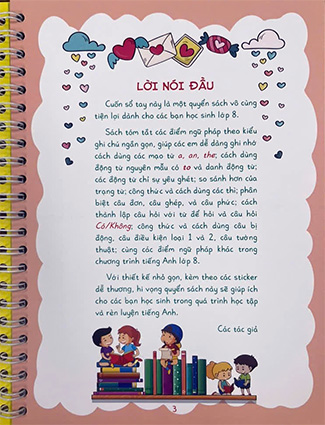 LỜI NÓI ĐẦU
Cuốn sổ tay này là một quyển sách vô cùng
tiện lợi dành cho các bạn học sinh lớp 8.
Sách tóm tắt các điểm ngữ pháp theo kiểu
ghi chú ngắn gọn, giúp các em dễ dàng ghi nhớ
cách dùng các mạo từ a, an, the; cách dùng
động từ nguyên mẫu có to và danh động từ;
các động từ chỉ sự yêu ghét; so sánh hơn của
trạng từ; công thức và cách dùng các thì; phân
biệt câu đơn, câu ghép, và câu phức; cách
thành lập câu hỏi với từ để hỏi và câu hỏi
Có/Không; công thức và cách dùng câu bị
động, câu điều kiện loại 1 và 2, câu tường
thuật; cùng các điểm ngữ pháp khác trong
chương trình tiếng Anh lớp 8.
Với thiết kế nhỏ gọn, kèm theo các sticker
dễ thương, hi vọng quyển sách này sẽ giúp ích
cho các bạn học sinh trong quá trình học tập
và rèn luyện tiếng Anh.
Các tác giả
3